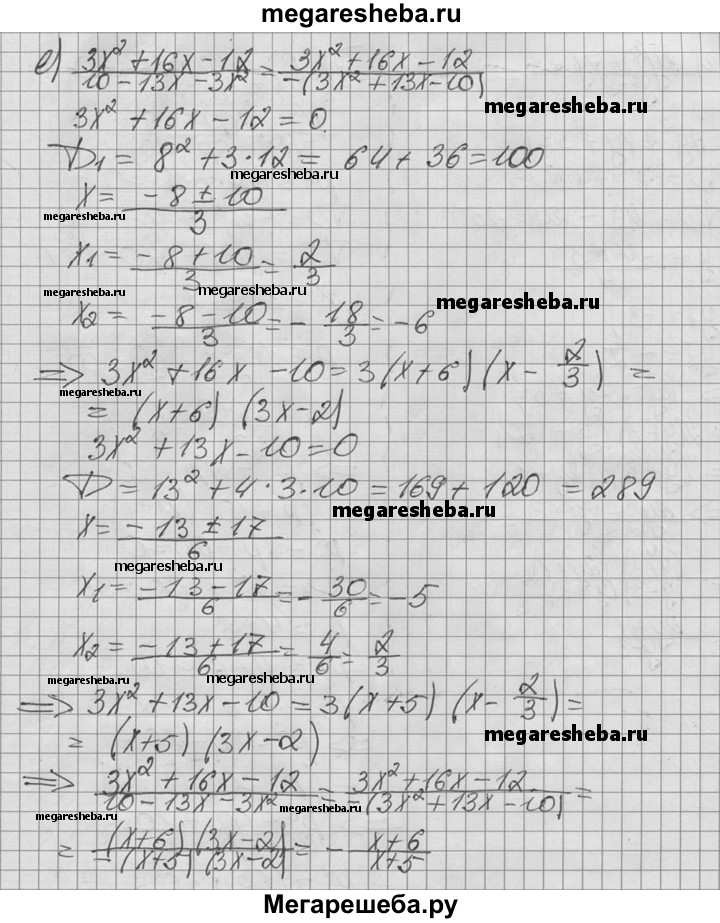 megaresheba.ru
е) (3x² + 16x − 12)/(10 − 13x − 3x²) = (3x² + 16x − 12)/(−(3x² + 13x − 10))
megaresheba.ru
3x² + 16x − 12 = 0
D₁ = 8² + 3·12 = 64 + 36 = 100
megaresheba.ru
x = (−8 ± 10)/3
megaresheba.ru
x₁ = (−8 + 10)/3 = 2/3
megaresheba.ru
megaresheba.ru
x₂ = (−8 − 10)/3 = −18/3 = −6
=> 3x² + 16x − 10 = 3(x + 6)(x − 2/3) =
megaresheba.ru
= (x + 6)(3x − 2)
3x² + 13x − 10 = 0
D = 13² + 4·3·10 = 169 + 120 = 289
megaresheba.ru
x = (−13 ± 17)/6
megaresheba.ru
x₁ = (−13 − 17)/6 = −30/6 = −5
x₂ = (−13 + 17)/6 = 4/6 = 2/3
megaresheba.ru megaresheba.ru
=> 3x² + 13x − 10 = 3(x + 5)(x − 2/3) =
= (x + 5)(3x − 2)
megaresheba.ru
=> (3x² + 16x − 12)/(10 − 13x − 3x²) = (3x² + 16x − 12)/(−(3x² + 13x − 10)) =
megaresheba.ru
= ((x + 6)(3x − 2))/(−(x + 5)(3x − 2)) = −(x + 6)/(x + 5)
megaresheba.ru megaresheba.ru
Мегарешеба.ру